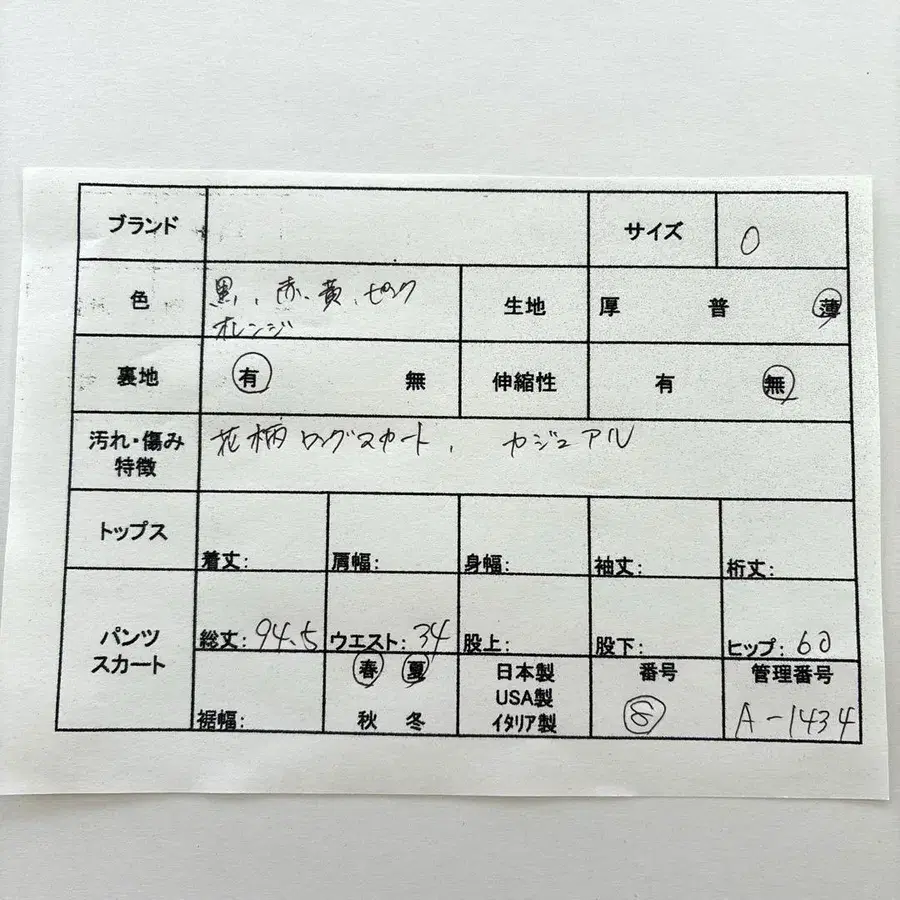 ブランド サイズ 0
色 黒、赤、黄、ピンク 生地 厚 普 薄
オレンジ
裏地 有 無 伸縮性 有 無
汚れ・傷み 花柄ロングスカート、カジュアル
特徴
トップス 着丈: 肩幅: 身幅: 袖丈: 裄丈:
パンツ 総丈:94.5 ウエスト:34 股上: 股下: ヒップ:60
スカート 春 夏 日本製 番号 管理番号
USA製
裾幅: 秋 冬 イタリア製 ⑧ A-1434